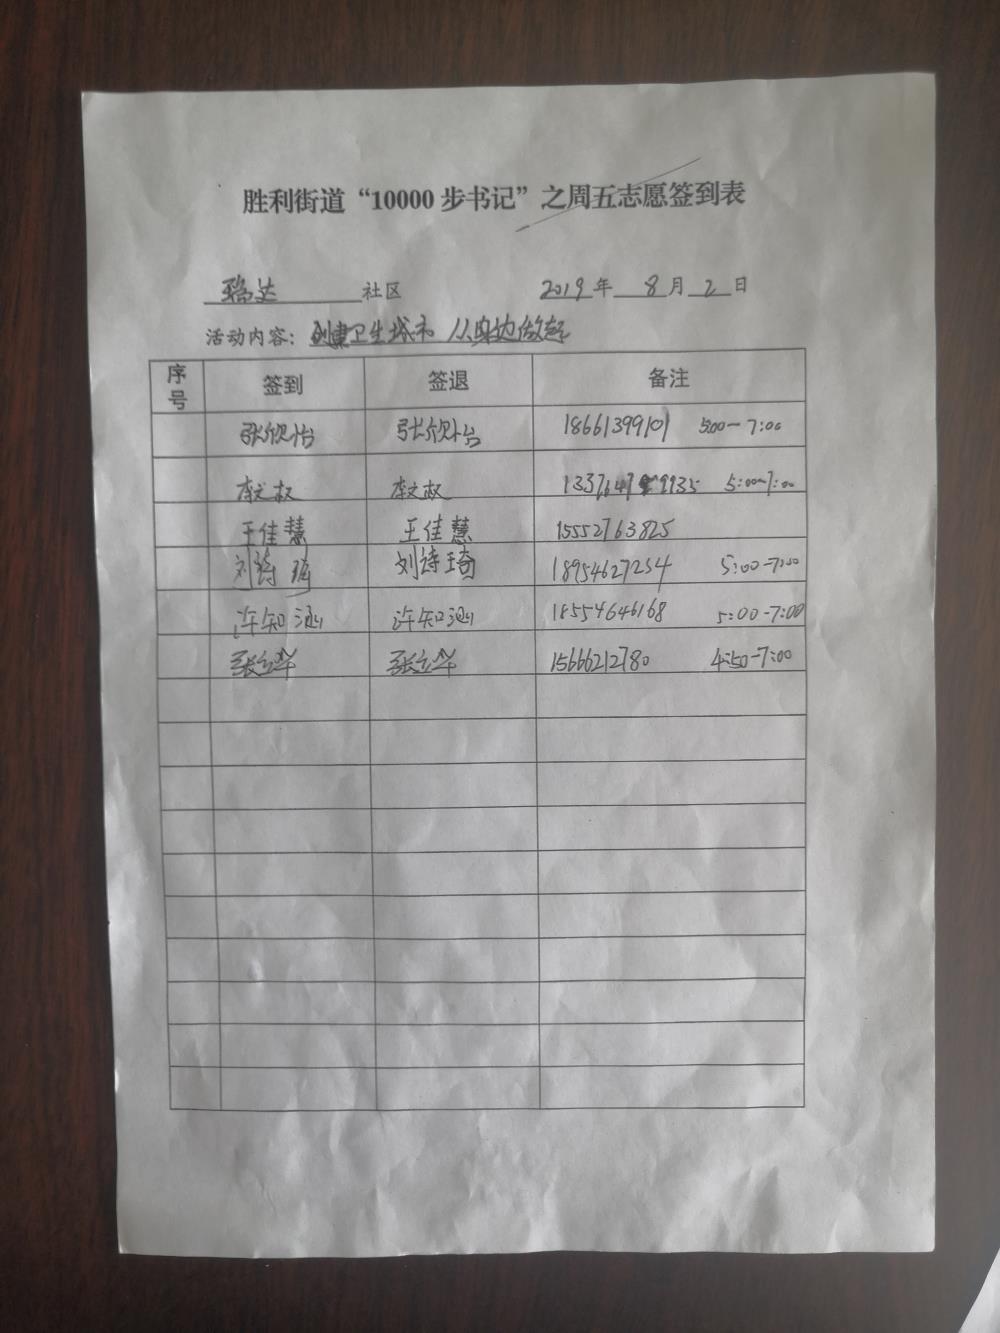 胜利街道“10000 步书记”之周五志愿签到表
瑞达 社区 2019 年 8 月 2 日
活动内容：创建卫生城市 从身边做起
序号 签到 签退 备注
张欣怡 张欣怡 18661399101 5:00-7:00
李文权 李文权 5:00-7:00
王佳慧 王佳慧 15552763825
刘诗琦 刘诗琦 18954627254 5:00-7:00
许知涵 许知涵 18554646168 5:00-7:00
张立华 张立华 15666212780 4:50-7:00